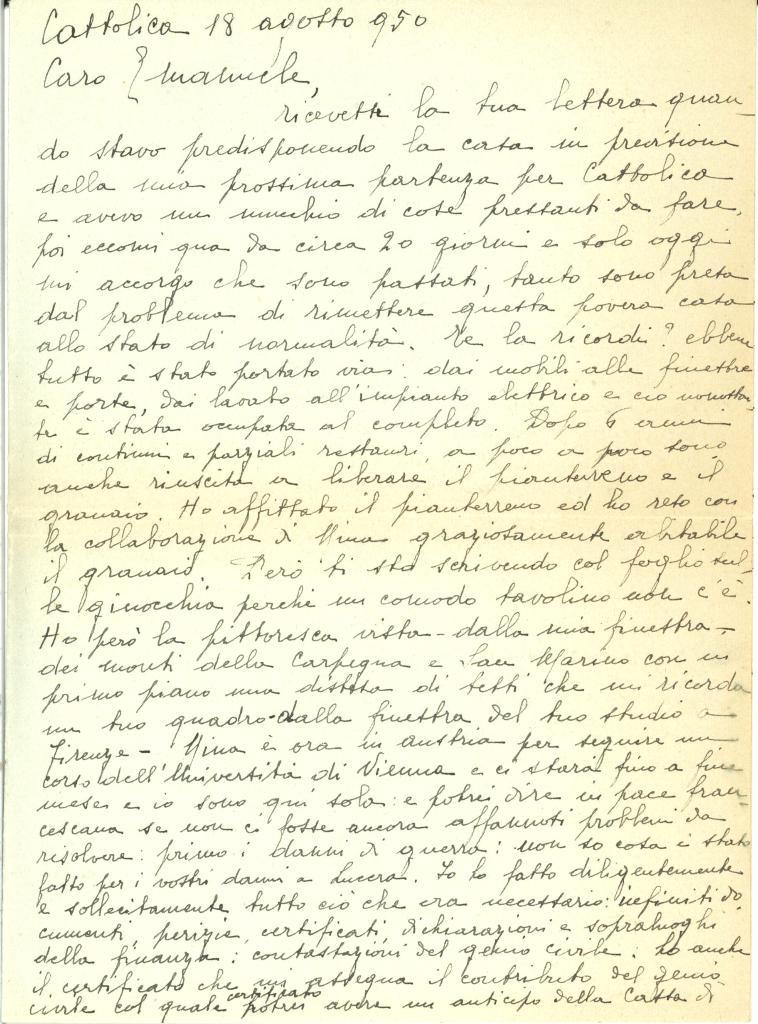 Cattolica 18 agosto 950
Caro Emanuele,
ricevetti la tua lettera quan-
do stavo predisponendo la casa in previsione
della mia prossima partenza per Cattolica
e avevo un mucchio di cose pressanti da fare,
poi eccomi qua da circa 20 giorni e solo oggi
mi accorgo che sono passati, tanto sono presa
dal problema di rimettere questa povera casa
allo stato di normalità. Te la ricordi? ebbene
tutto è stato portato via: dai mobili alle finestre
e porte, dai lavato all'impianto elettrico e ciò nonostan-
te è stata occupata al completo. Dopo 6 anni
di continui e parziali restauri, a poco a poco sono
anche riuscita a liberare il pianterreno e il
granaio. Ho affittato il pianterreno ed ho reso con
la collaborazione di Mina graziosamente abitabile
il granaio. Però ti sto scrivendo col foglio sul-
le ginocchia perchè un comodo tavolino non c'è.
Ho però la pittoresca vista - dalla mia finestra -
dei monti della Carpegna e San Marino con in
primo piano una distesa di tetti che mi ricorda
un tuo quadro - dalla finestra del tuo studio a
Firenze - Mina è ora in Austria per seguire un
corso dell'Università di Vienna e ci starà fino a fine
mese e io sono qui sola: e potrei dire in pace fran-
cescana se non ci fosse ancora affannosi problemi da
risolvere: primo i danni di guerra: non so cosa è stato
fatto per i vostri danni a Lucera. Io ho fatto diligentemente
e sollecitamente tutto ciò che era necessario: infiniti do-
cumenti, perizie, certificati, dichiarazioni e sopraluoghi
della finanza: contastazioni del genio civile. Ho anche
il certificato che mi assegna il contributo del genio
civile col quale certificato potrei avere un anticipo della Cassa di